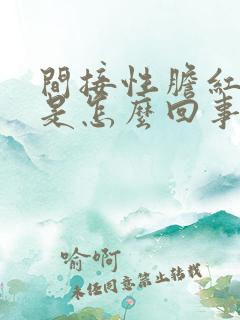 間接性膽紅
是怎麼回事
喻啊
未经同意禁止转载